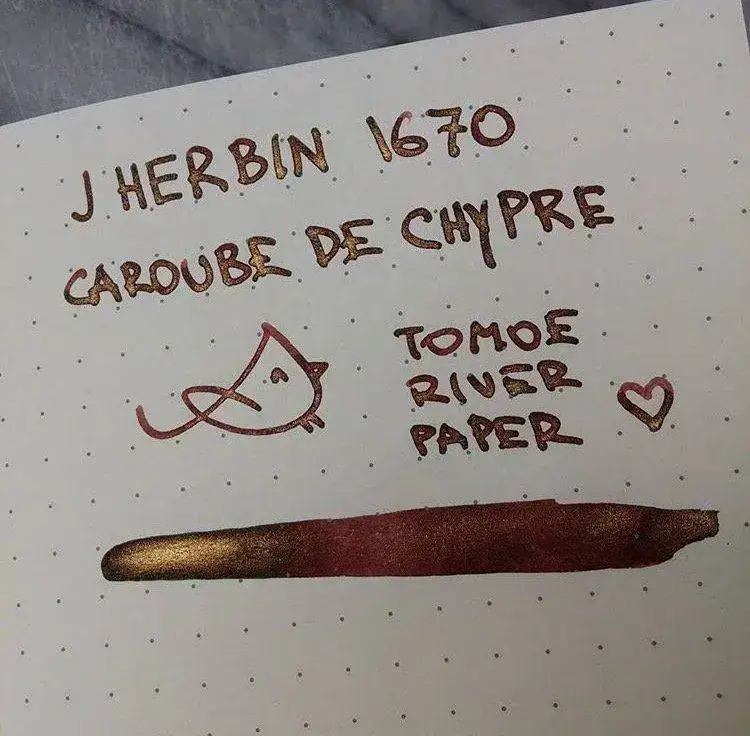 J HERBIN 1670
CAROUBE DE CHYPRE
TOMOE
RIVER
PAPER